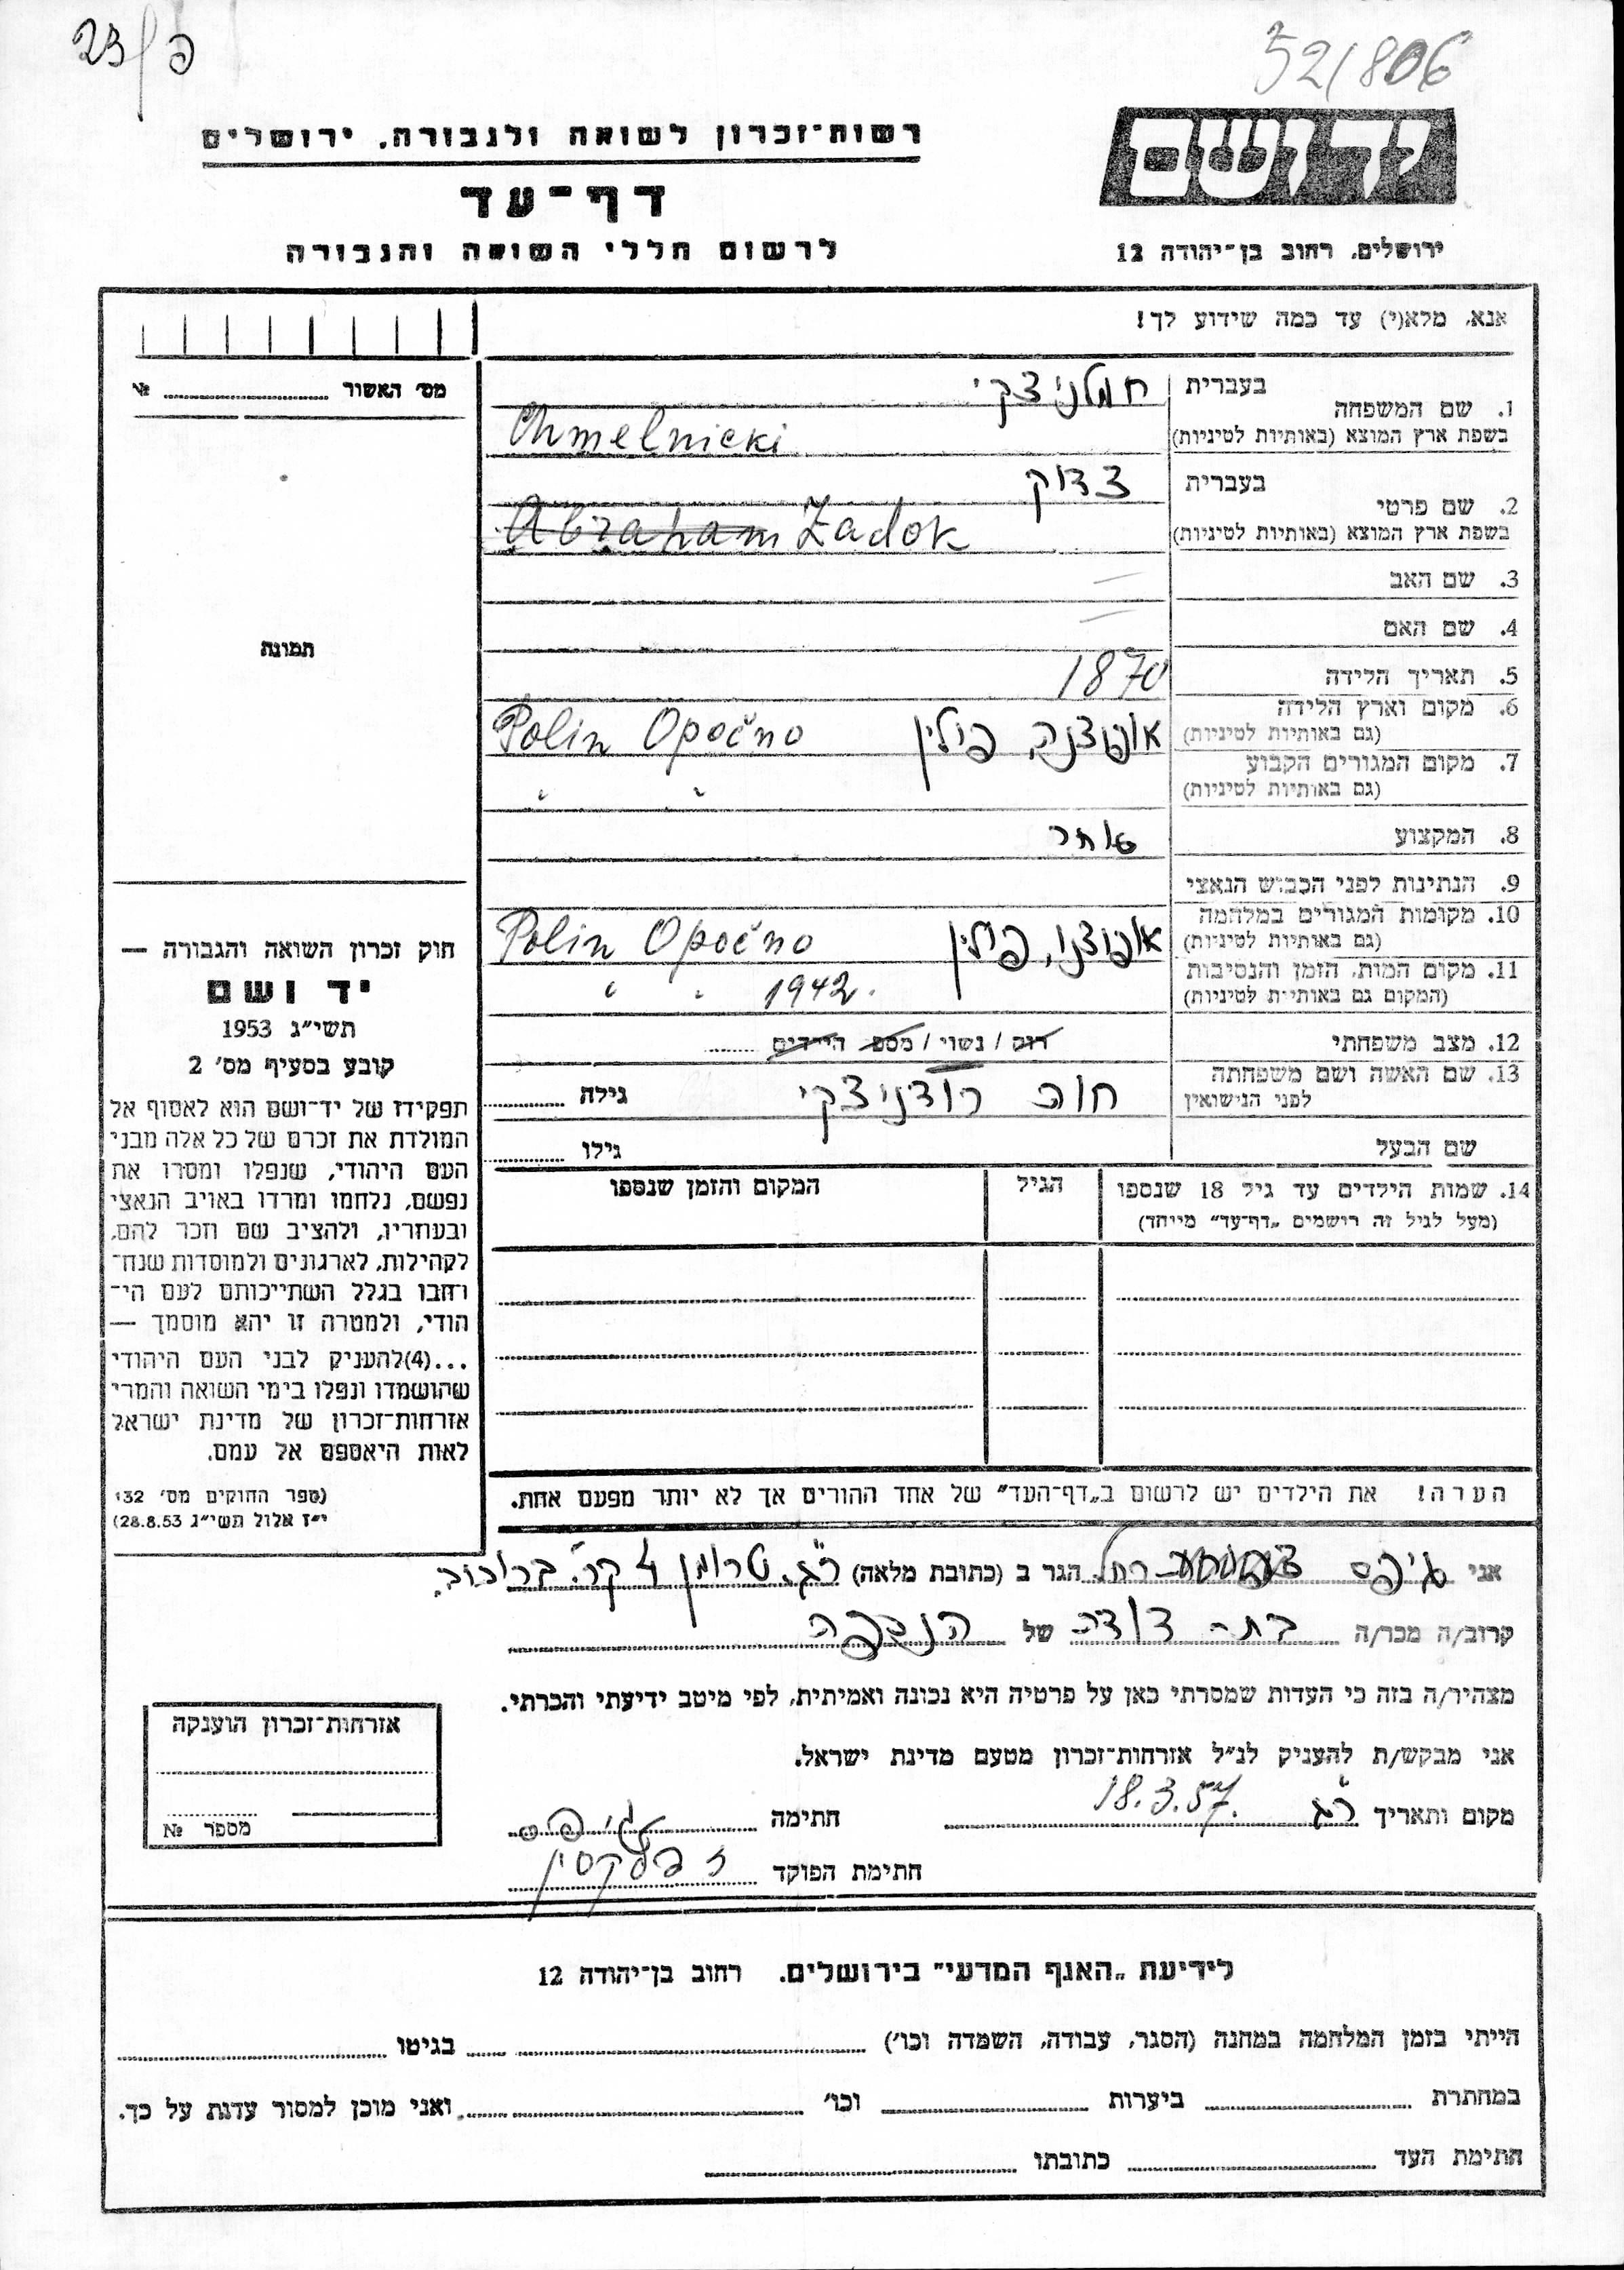 23/פ
52/806
יד ושם
רשות־זכרון לשואה ולגבורה. ירושלים
דף־עד
לרשום חללי השואה והגבורה
ירושלים. רחוב בן־יהודה 12
אנא, מלא(י) עד כמה שידוע לך!
מס' האשור № 
1. שם המשפחה
בעברית חמלניצקי
בשפת ארץ המוצא (באותיות לטיניות) Chmelnicki
2. שם פרטי
בעברית צדוק
בשפת ארץ המוצא (באותיות לטיניות) Abraham Zadok
3. שם האב —
4. שם האם —
תמונה
5. תאריך הלידה 1870
6. מקום וארץ הלידה
(גם באותיות לטיניות) אופוצנה, פולין Polin Opočno
7. מקום המגורים הקבוע
(גם באותיות לטיניות) " "
8. המקצוע סוחר
9. הנתינות לפני הכבוש הנאצי
10. מקומות המגורים במלחמה
(גם באותיות לטיניות) אופוצנו, פולין Polin Opočno
11. מקום המות, הזמן והנסיבות
(המקום גם באותיות לטיניות) " " 1942.
12. מצב משפחתי רוק / נשוי / מספ הילדים
13. שם האשה ושם משפחתה
לפני הנישואין חוה רודניצקי גילה
שם הבעל גילו
14. שמות הילדים עד גיל 18 שנספו
(מעל לגיל זה רושמים „דף־עד" מייחד)
הגיל
המקום והזמן שנספו
חוק זכרון השואה והגבורה —
יד ושם
תשי"ג 1953
קובע בסעיף מס' 2
תפקידו של יד־ושם הוא לאסוף אל
המולדת את זכרם של כל אלה מבני
העם היהודי, שנפלו ומסרו את
נפשם, נלחמו ומרדו באויב הנאצי
ובעוזריו, ולהציב שם וזכר להם,
לקהילות, לארגונים ולמוסדות שנח־
רחבו בגלל השתייכותם לעם הי־
הודי, ולמטרה זו יהא מוסמך —
...(4) להעניק לבני העם היהודי
שהושמדו ונפלו בימי השואה והמרי
אזרחות־זכרון של מדינת ישראל
לאות היאספם אל עמם.
(ספר החוקים מס' 132
י"ז אלול תשי"ג 28.8.53)
הערה! את הילדים יש לרשום ב„דף־העד" של אחד ההורים אך לא יותר מפעם אחת.
אני גיפס רחל הגר ב (כתובת מלאה) ר"ג. טרומן 4 קר. ברוכוב.
קרוב/ה מכר/ה בת דודה של הנספה
מצהיר/ה בזה כי העדות שמסרתי כאן על פרטיה היא נכונה ואמיתית, לפי מיטב ידיעתי והכרתי.
אני מבקש/ת להעניק לנ"ל אזרחות־זכרון מטעם מדינת ישראל.
מקום ותאריך ר"ג 18.3.57. חתימה גיפס
חתימת הפוקד
אזרחות־זכרון הוענקה
מספר №
לידיעת „האגף המדעי" בירושלים. רחוב בן־יהודה 12
הייתי בזמן המלחמה במחנה (הסגר, עבודה, השמדה וכו') בגיטו
במחתרת ביערות וכו' ואני מוכן למסור עדות על כך.
חתימת העד כתובתו